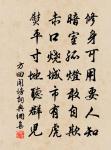 修身可用要人知
暗室孤燈敢自欺
赤口燒城市有虎
熨平寸地聽群兒
方回閒話詞典網集